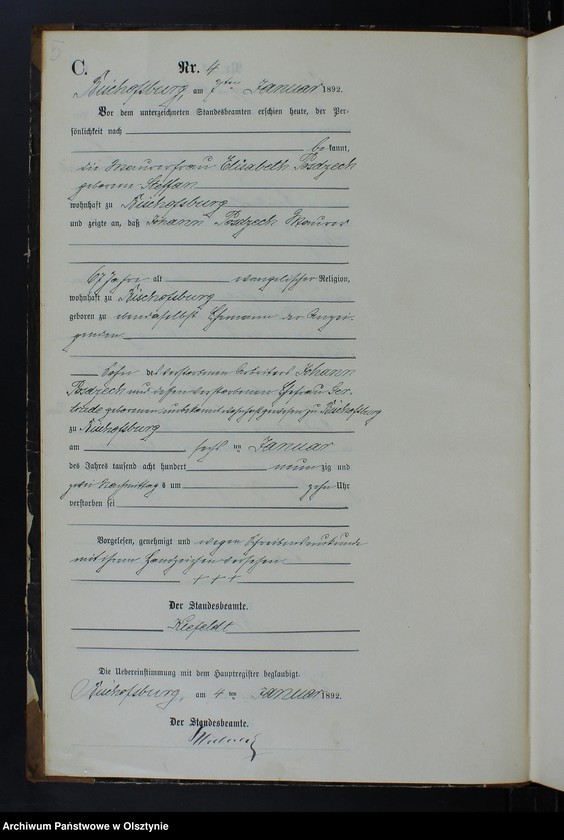 C. Nr. 4
Bischofsburg, am 7ten Januar 1892.
Vor dem unterzeichneten Standesbeamten erschien heute, der Per-
sönlichkeit nach
be kannt,
die Maurerfrau Elisabeth Posdzech
geborene Steffan
wohnhaft zu Bischofsburg
und zeigte an, daß Johann Posdzech Maurer
67 Jahre alt evangelischer Religion,
wohnhaft zu Bischofsburg
geboren zu ebendaselbst Ehemann der Anzei-
genden
Sohn des verstorbenen Arbeiters Johann
Posdzech und dessen verstorbenen Ehefrau Ger-
geborenen zu Bischofsburg
zu Bischofsburg
am sechs ten Januar
des Jahres tausend acht hundert neunzig und
zwei Nachmittags um zehn Uhr
verstorben sei
Vorgelesen, genehmigt und wegen Schreibensunkunde
mit ihrem Handzeichen versehen
+ + +
Der Standesbeamte.
Klefeldt
Die Uebereinstimmung mit dem Hauptregister beglaubigt.
Bischofsburg, am ten Januar 1892.
Der Standesbeamte.
Archiwum Państwowe w Olsztynie